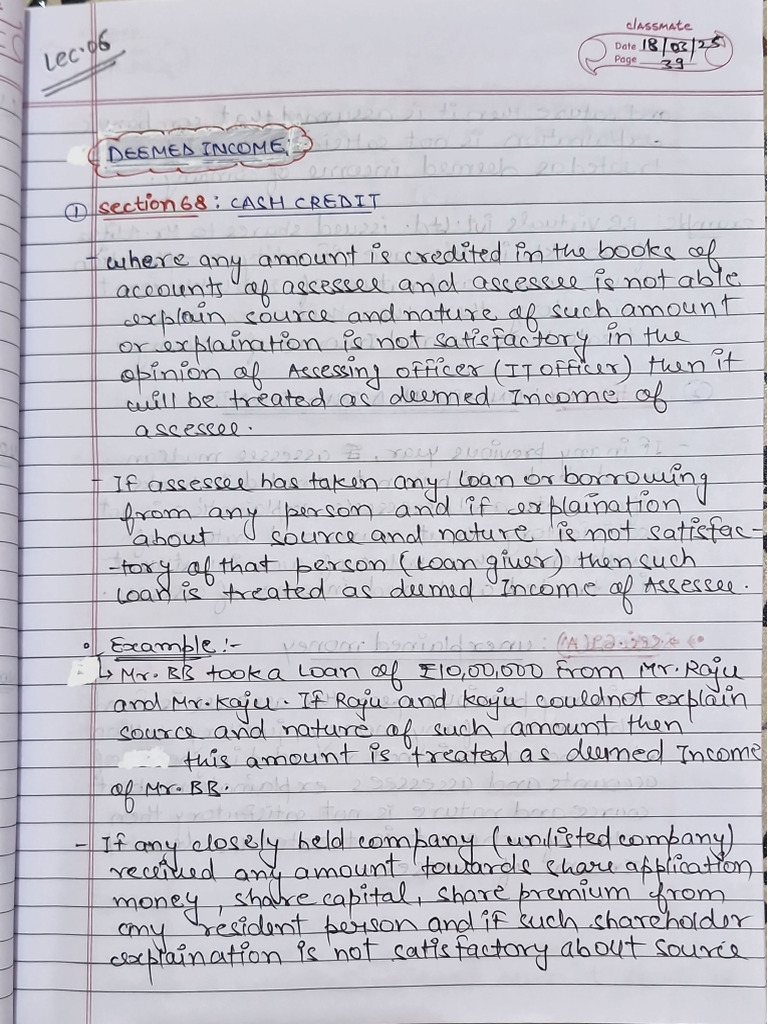 Lec.06
classmate
Date 18/03/25
Page 39
DEEMED INCOME:
① Section 68 : CASH CREDIT
- where any amount is credited in the books of
accounts of assessee and assessee is not able
explain source and nature of such amount
or explaination is not satisfactory in the
opinion of Assessing officer (IT officer) then it
will be treated as deemed Income of
assessee.
- If assessee has taken any loan or borrowing
from any person and if explaination
about source and nature is not satisfac-
-tory of that person (Loan giver) then such
Loan is treated as deemed Income of Assessee.
Example :-
↳ Mr. BB took a Loan of ₹10,00,000 from Mr. Raju
and Mr. Kaju. If Raju and Kaju couldnot explain
source and nature of such amount then
this amount is treated as deemed Income
of Mr. BB.
- If any closely held company (unlisted company)
received any amount towards share application
money, share capital, share premium from
any resident person and if such shareholder
explaination is not satisfactory about source